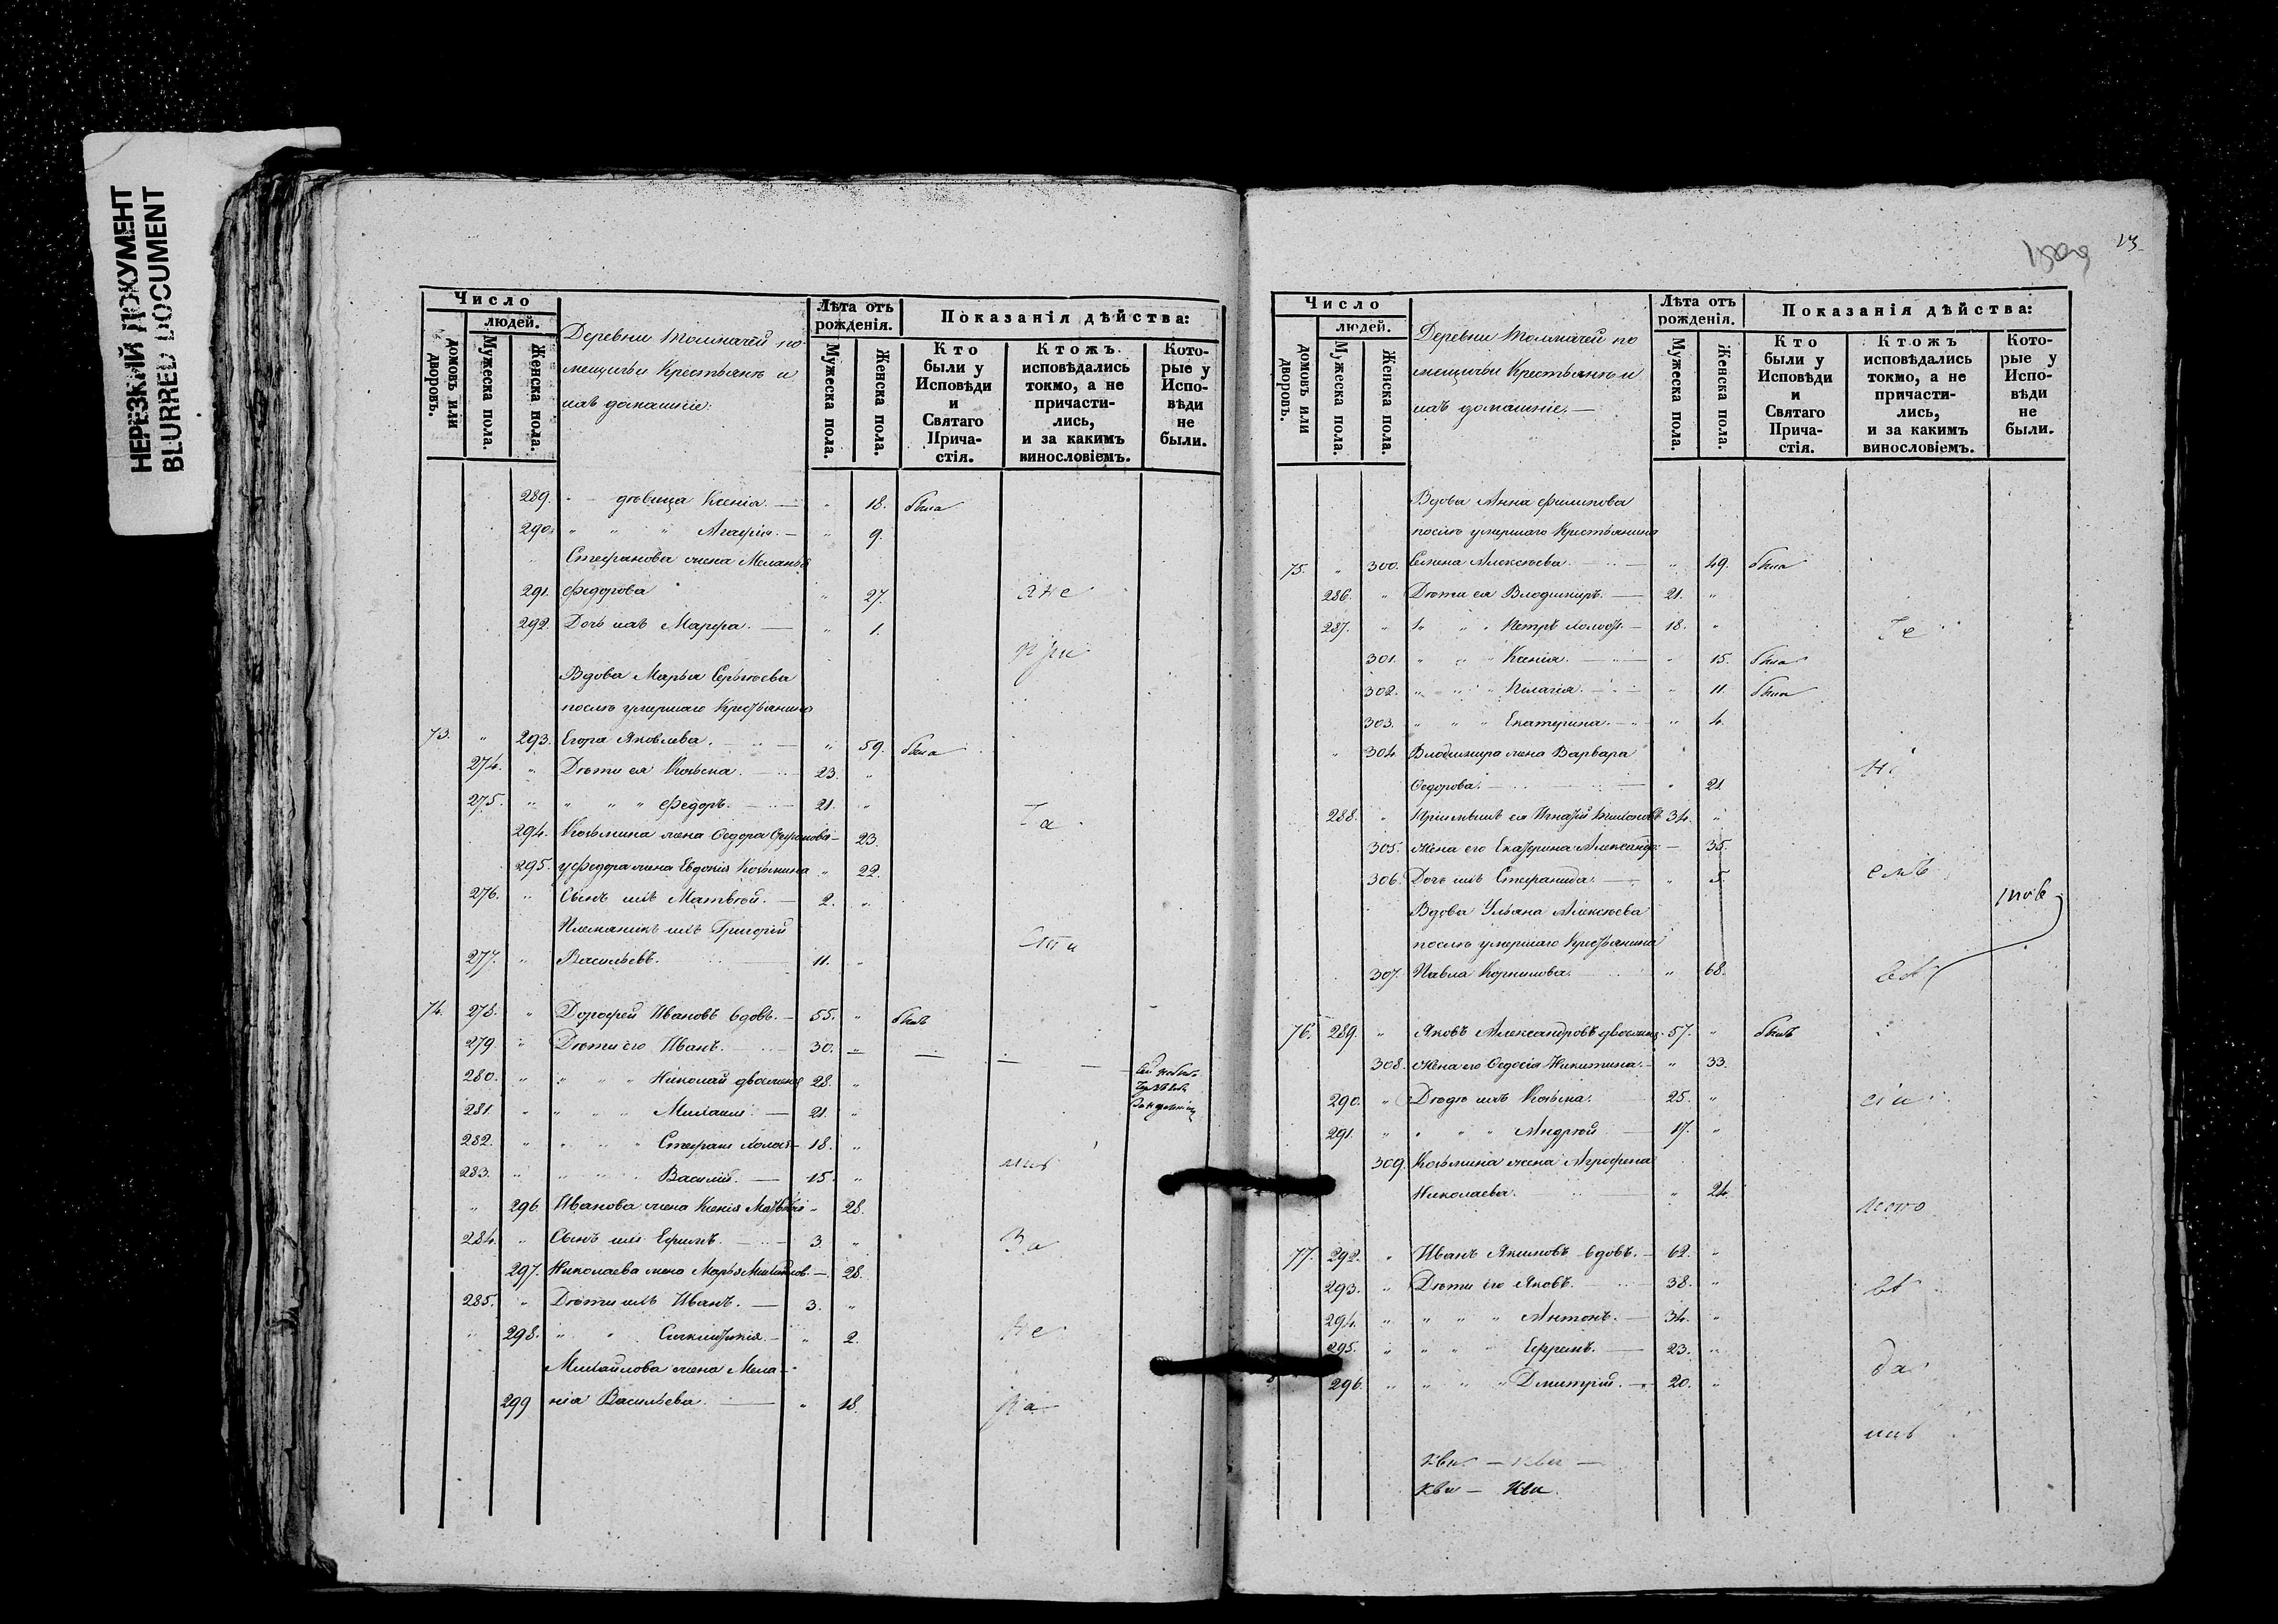 НЕРЕЗКИЙ ДОКУМЕНТ
BLURRED DOCUMENT
Число
людей.
домовъ или дворовъ.
Мужеска пола.
Женска пола.
Деревни Толмачей по-
мещичьи Крестьяне и
ихъ домашніе:
Лѣта отъ рожденія.
Мужеска пола.
Женска пола.
Показанія дѣйства:
Кто были у Исповѣди и Святаго Прича-стія.
Ктожъ исповѣдались токмо, а не причасти-лись, и за какимъ винословіемъ.
Кото-рые у Испо-вѣди не были.
289. " — дѣвица Ксенія. — " 18. была
290. " " " Агафія. — " 9.
Стефанова жена Меланья
291. Федорова " 27.
292. Дочь ихъ Марфа. — " 1.
при
Вдова Марья Сергѣева
послѣ умершаго Крестьянина
73. " 293. Егора Яковлева. — " 59. была
274. " Дѣти ея Козьма. — 23. "
275. " " " " Федоръ. — 21. "
294. Козьмина жена Федора — 23.
295. у Федора жена Евдокія Козьмина " 22.
276. " Сынъ ихъ Матвѣй. — 2. "
Племянникъ ихъ Григорій
277. " Васильевъ. 11. "
74. 278. " Дорофей Ивановъ вдовъ. — 55. " былъ
279. " Дѣти его Иванъ. — 30. —
280. " " " " Николай двоеженъ 28. "
281. " " " " Михаилъ — 21. "
282. " " " " Стефанъ холост — 18. "
283. " " " " Василій. — 15. "
" 296. Иванова жена Ксенія " 28.
284. " Сынъ ихъ Ефимъ. — 3. "
За
297. Николаева жена Марья — 28.
285. " Дѣти ихъ Иванъ. — 3. "
298. " " — " 2.
не
Михайлова жена Мела-
299 нія Васильева. — " 18.
13
Число
людей.
домовъ или дворовъ.
Мужеска пола.
Женска пола.
Деревни Толмачей по
мещичьи Крестьяне и
ихъ домашніе. —
Лѣта отъ рожденія.
Мужеска пола.
Женска пола.
Показанія дѣйства:
Кто были у Исповѣди и Святаго Прича-стія.
Ктожъ исповѣдались токмо, а не причасти-лись, и за какимъ винословіемъ.
Кото-рые у Испо-вѣди не были.
Вдова Анна Филипова
послѣ умершаго Крестьянина
75. " 300. Семена Алексѣева. — " 49. была
286. " Дѣти ея Владимиръ. — 21. "
287. " " " Петръ холост. — 18. "
301. " " " Ксенія. — " 15. была
302. " " " Пелагія. — " 11. была
303. " " " Екатерина. — " 4.
" 304. Владимира жена Варвара
Федорова. — " 21
288. " Пріимышъ ея Игнатій 34. "
305. Жена его Екатерина Александр. — 35.
306. Дочь ихъ Стефанида. — " 5.
Вдова Ульяна Алексѣева
послѣ умершаго Крестьянина
307. Павла Корнилова. " 68.
76. 289. " Яковъ Александровъ двоеженъ 57. " былъ
308. Жена его Федосія Никитина. — " 33.
290. " Дѣти ихъ Козьма. 25. "
291. " " " " Андрей 17. "
309. Козьмина жена Агрофена
Николаева. — " 24.
77. 292. " Иванъ Якимовъ вдовъ. — 62. "
293. " Дѣти его Яковъ. — 38. "
294. " " " " Антонъ. — 34. "
295. " " " " Ефремъ. — 23. "
296. " " " " Дмитрій. — 20. "